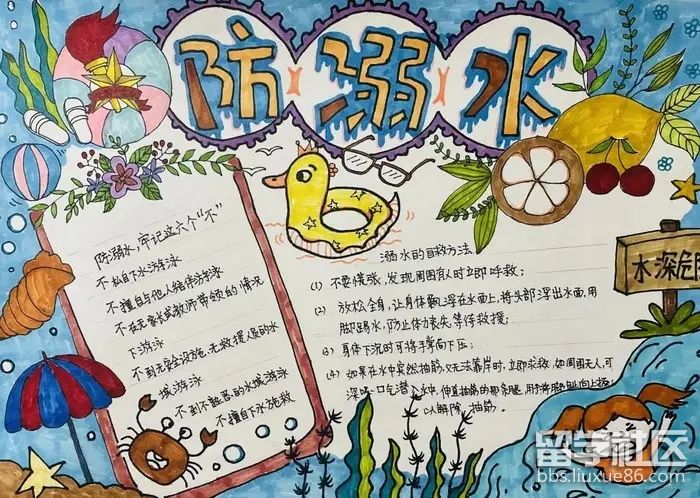 防溺水
防溺水,牢记这六个“不”
不私自下水游泳
不擅自与他人结伴游泳
不在无家长或教师带领的情况
下游泳
不到无安全设施、无救援人员的水
域游泳
不到不熟悉的水域游泳
不擅自下水施救
溺水的自救方法
(1) 不要慌张,发现周围有人时立即呼救;
(2) 放松全身,让身体飘浮在水面上,将头部浮出水面,用
脚踢水,防止体力丧失,等待救援;
(3) 身体下沉时可将手掌向下压;
(4) 如果在水中突然抽筋,又无法靠岸时,立即求救,如周围无人,可
深吸一口气潜入水中,伸直抽筋的那条腿,用手将脚趾向上扳,
以解除抽筋。
水深危险
留学社区
bbs.liuxue86.com